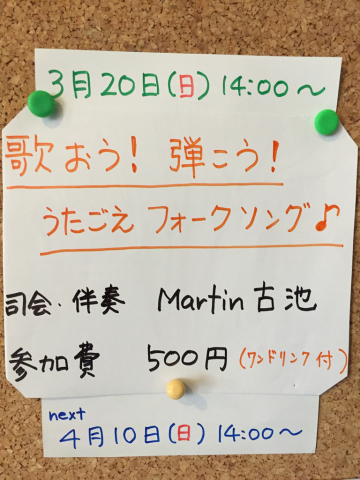 3月20日(日) 14:00～
歌おう! 弾こう!
うたごえ フォークソング♪
司会・伴奏 Martin古池
参加費 500円 (ワンドリンク付)
next
4月10日(日) 14:00～